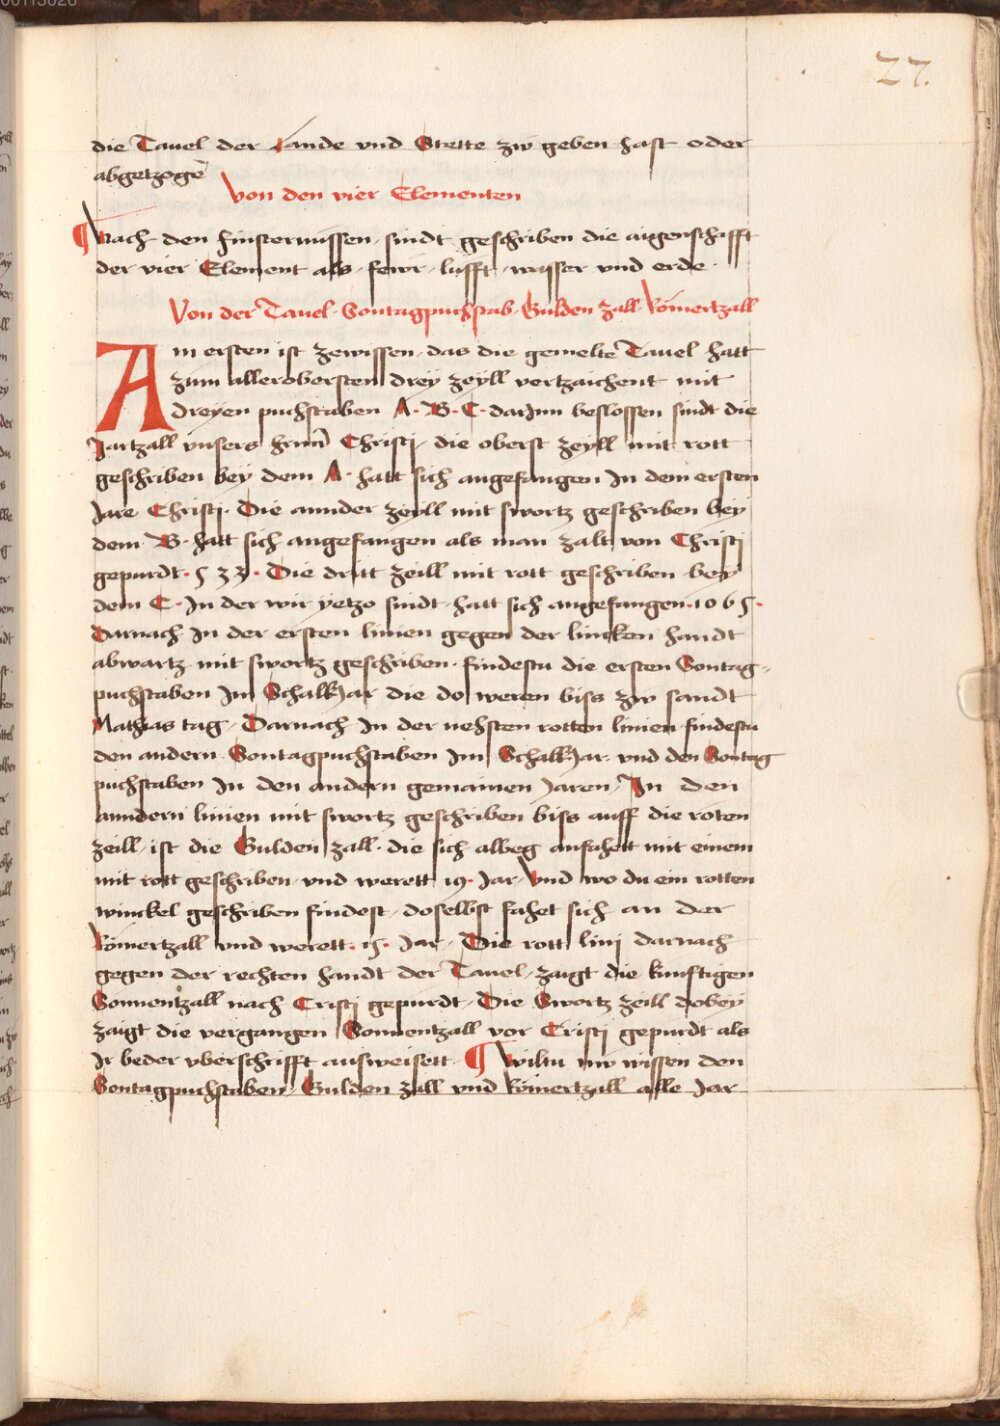 27.
die Tauel der Lande vnd Stette zw geben hast oder
abgetzogē
Von den vier Elementen
¶ Nach den finsternussen sindt geschriben die aigenschafft
der vier Element als fewr lufft wasser vnd erde
Von der Tauel Sontagpuchstab Gulden zall Römertzall
Am ersten ist zewissen das die gemelte Tauel hatt
zum allerobersten drey zeyll vertzaichent mit
dreyen puchstaben A. B. C. darJnn beslossen sindt die
Jartzall vnsers hrnn Christj die oberst zeyll mit rott
geschriben bey dem A. hatt sich angefangen Jn dem ersten
Jare Christj. Die annder zeyll mit swortz geschriben bey
dem B. hatt sich angefangen als man zalt von Christj
gepurdt. 533. Die dritt zeill mit rott geschriben bey
dem C. Jn der wir yetzo sindt hatt sich angefangen. 1065.
Darnach Jn der ersten linien gegen der lincken handt
abwartz mit swortz geschriben findestu die ersten Sontag-
puchstaben Jm SchalkJar die do weren biss zw sandt
Mathias tag. Darnach Jn der nehsten rotten linien findestu
den andern Sontagpuchstaben Jm SchalkJar vnd den Sontag
puchstaben Jn den andern gemainen Jaren Jn den
anndern linien mit swortz geschriben biss auff die roten
zeill ist die Gulden zall die sich albeg anfahett mit einem
mit rott geschriben vnd werett 19. Jar Vnd wo du ein rotten
winckel geschriben findest doselbst fahet sich an der
Römertzall vnd werett. 15. Jar Die rott linj darnach
gegen der rechten handt der Tauel zaigt die kunftigen
Sonnentzall nach Cristj gepurdt. Die Swortz zeill dobey
zaigt die vergangen Sonnentzall vor Cristj gepurdt als
Jr beder vberschrifft ausweisett. ¶ Wiltu nw wissen den
Sontagpuchstaben Gulden zall vnd Römertzall alle Jar